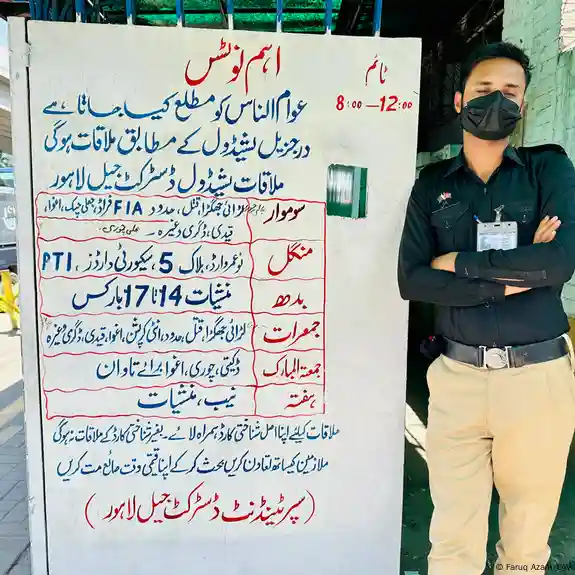 اہم نوٹس
ٹائم
8:00 – 12:00
عوام الناس کو مطلع کیا جاتا ہے
درجزیل شیڈول کے مطابق ملاقات ہوگی
ملاقات شیڈول ڈسٹرکٹ جیل لاہور
سوموار لڑائی جھگڑا، قتل، حدود FIA فراڈ، جعلی چیک، اغوا،
قیدی، ڈگری وغیرہ ۔
منگل نوعمر وارڈ، بلاک 5، سیکورٹی وارڈز، PTI
بدھ منشیات 14 تا 17 بارکس
جمعرات لڑائی جھگڑا، قتل، حدود، انٹی کرپشن، اغوا، قیدی، ڈگری وغیرہ
جمعتہ المبارک ڈکیتی، چوری، اغوا برائے تاوان
ہفتہ نیب، منشیات
ملاقات کیلئے اپنا اصل شناختی کارڈ ہمراہ لائے ۔ بغیر شناختی کارڈ کے ملاقات نہ ہوگی
ملازمین کیساتھ تعاون کریں بحث کر کے اپنا قیمتی وقت ضائع مت کریں
(سپرٹینڈنٹ ڈسٹرکٹ جیل لاہور)
© Faruq Azam/DW